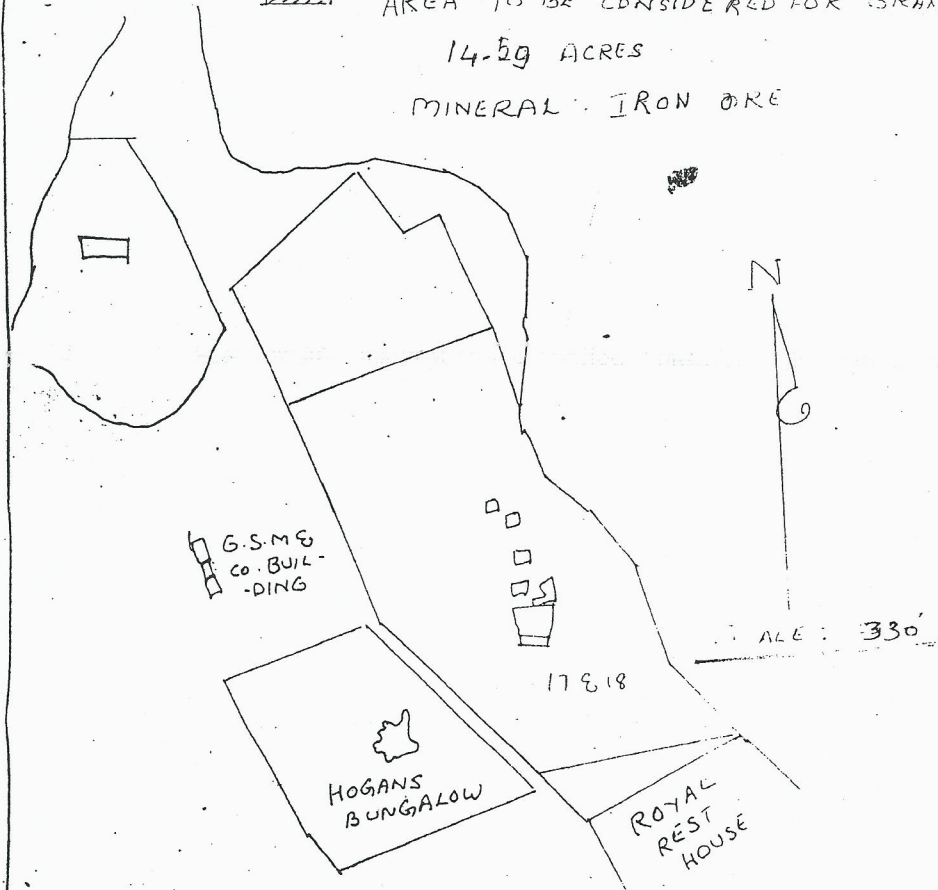 AREA TO BE CONSIDERED FOR
14.59 ACRES
MINERAL : IRON ORE
N
G.S.M &
CO. BUIL-
-DING
ALE : 330'
17 & 18
HOGANS
BUNGALOW
ROYAL
REST
HOUSE